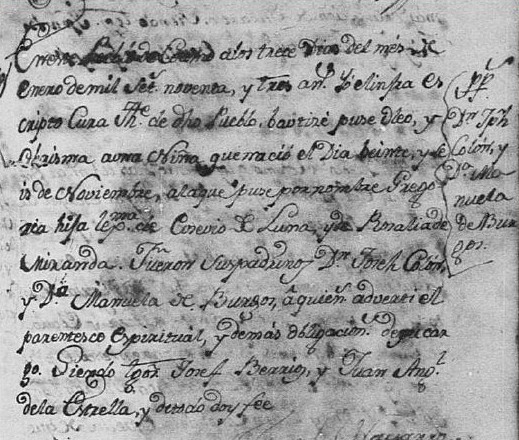 En este Pueblo de a los trece Dias del mes de
Enero de mil Set.s noventa, y tres an.s Yo el infra es
cripto Cura Th.e de dho Pueblo, bautizè puse Oleo, y
Chrisma a una Niña que naciò el Dia veinte, y se
is de Noviembre, a la que puse por nombre Grego
ria hija lex.ma de Luna, y de Rosalia de
Miranda. Fueron sus padrinos D.n Joseh Colon,
y D.a Manuela de Burgos, à quien.s advertì el
parentesco espiritual, y demàs obligacion.s de su car
go. Siendo tgos. Josef Berrios, y Juan Ant.o
de la Estrella, y de todo doy fee
PP.
D.n Jph
Colon, y
D.a Ma
nuela
de Bur
gos.